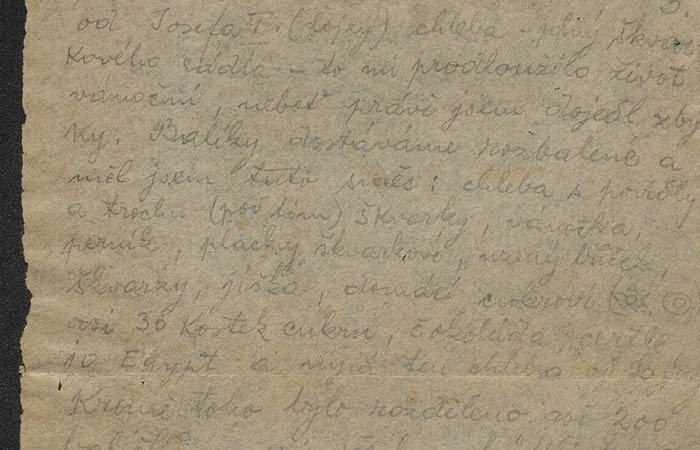 od Josefa T. (dojný) chleba - plný škvar
kového sádla - to mi prodloužilo život
vánoční, neboť právě jsem dojedl zby
ky. Balíky dostáváme rozbalené a
měl jsem tuto směs: chleba s povidly
a trochu (pod tím) škvarky, vánočka,
perník, placky škvarkové, uzený bůček,
škvarky, jíška, domácí cukroví
asi 30 kostek cukru, čokoláda,
10 Egypt a nyní ten chleba od
Kromě toho bylo rozděleno asi 200